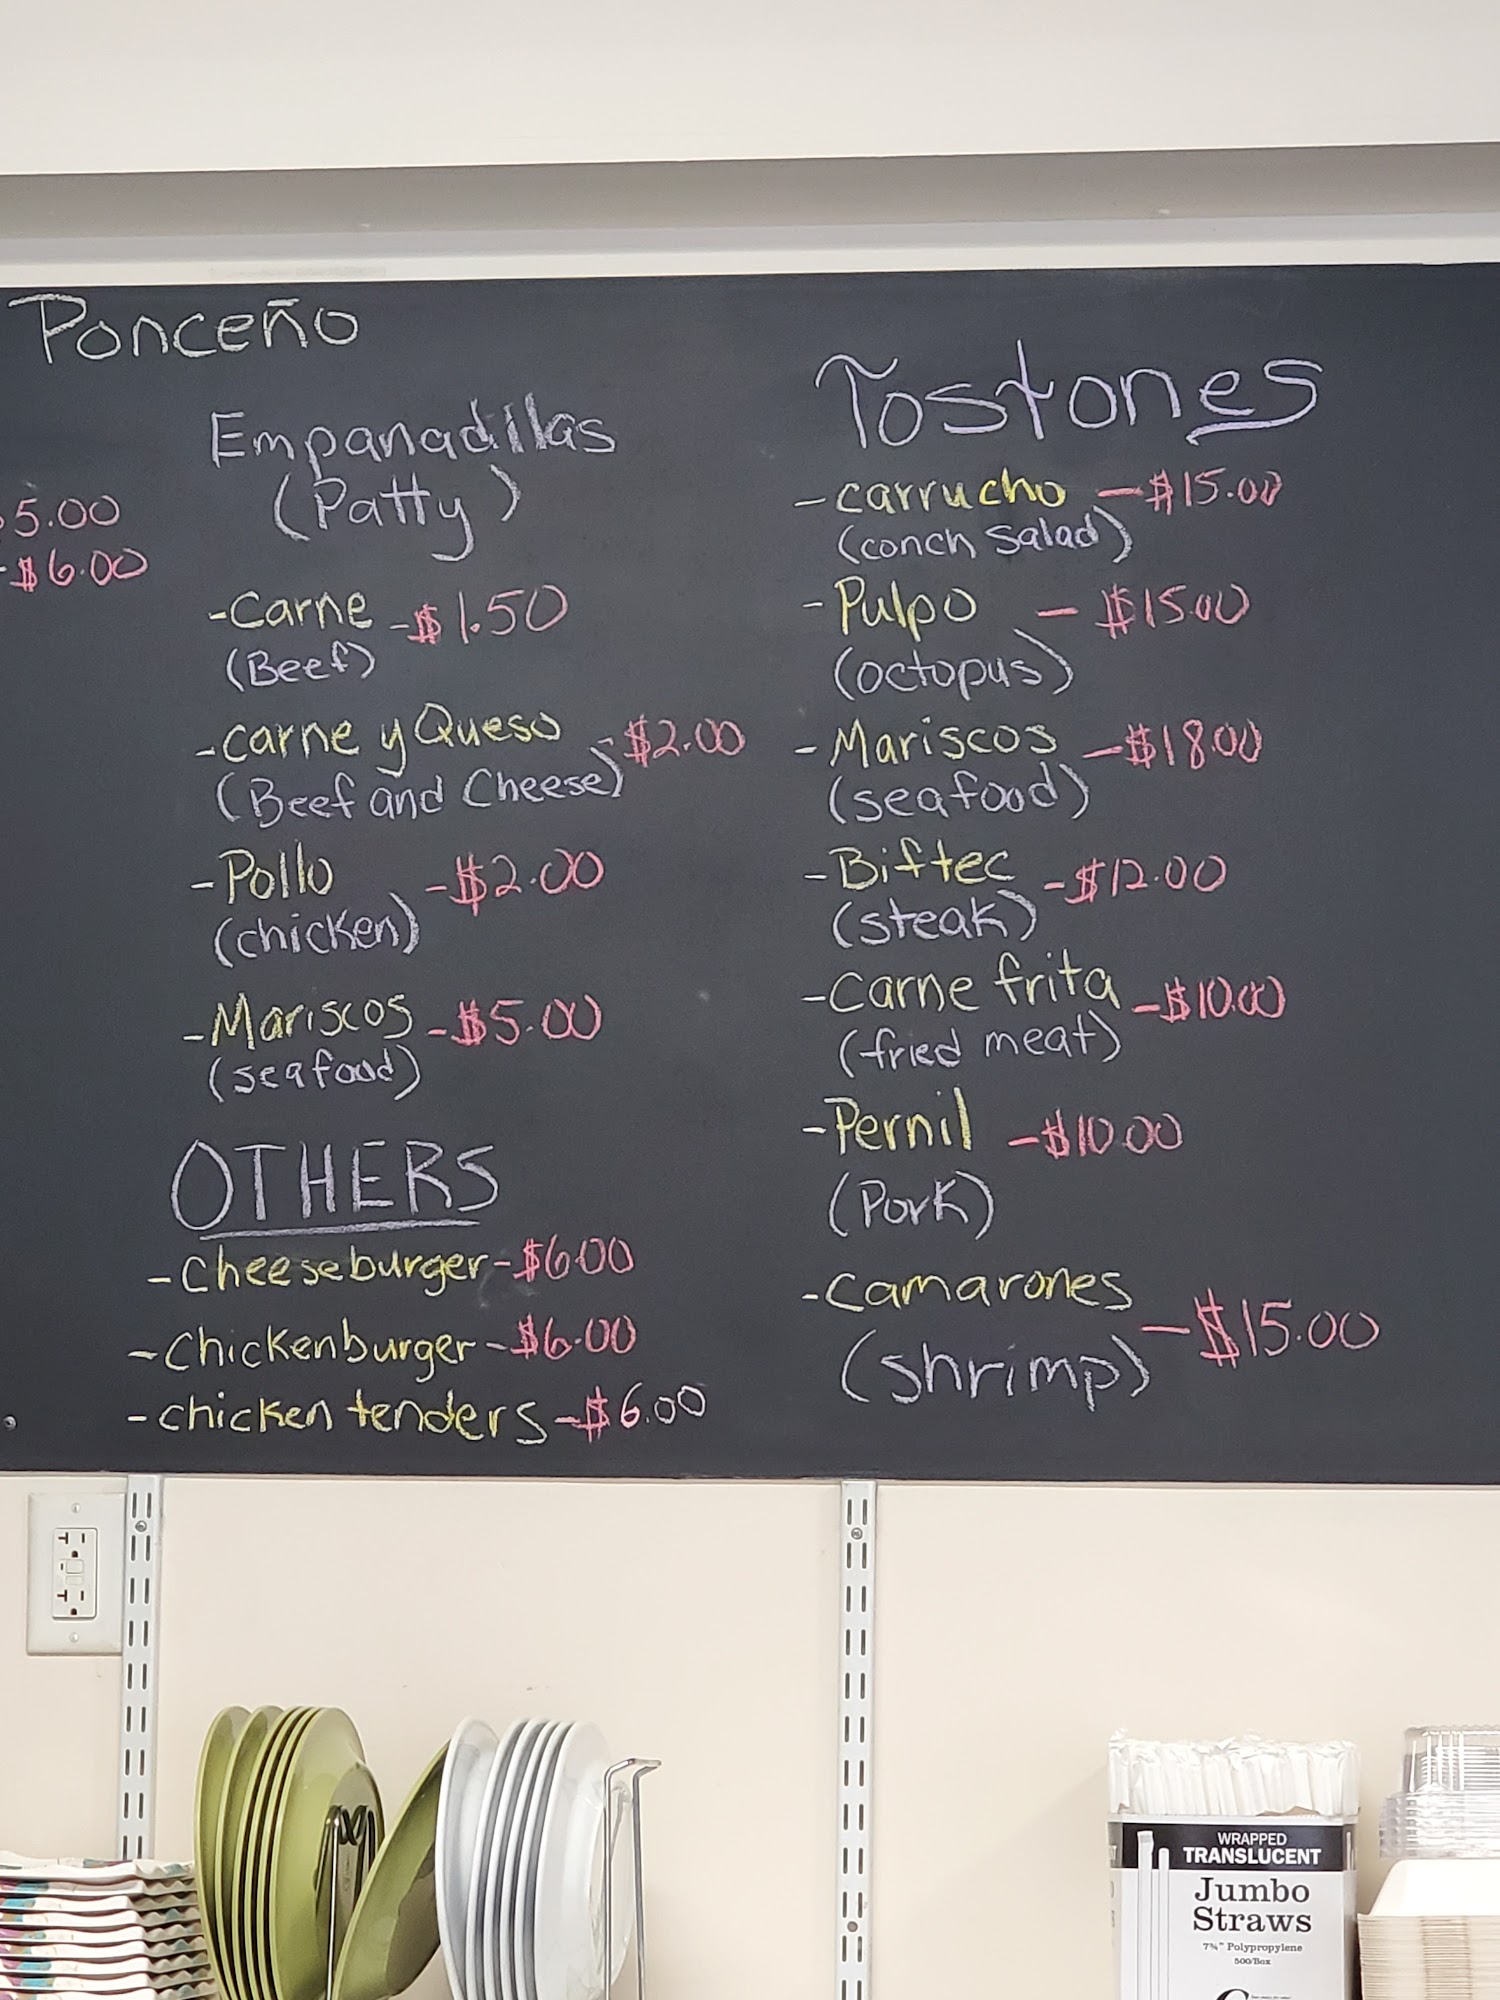 Ponceño
$5.00
-$6.00
Empanadillas
(Patty)
-Carne -$1.50
(Beef)
-Carne y Queso -$2.00
(Beef and Cheese)
-Pollo -$2.00
(chicken)
-Mariscos -$5.00
(seafood)
OTHERS
-Cheeseburger-$6.00
-Chickenburger-$6.00
-chicken tenders-$6.00
Tostones
-carrucho -$15.00
(conch salad)
-Pulpo - $15.00
(octopus)
-Mariscos -$18.00
(seafood)
-Biftec -$12.00
(steak)
-Carne frita -$10.00
(fried meat)
-Pernil -$10.00
(Pork)
-camarones -$15.00
(shrimp)
WRAPPED
TRANSLUCENT
Jumbo
Straws
7¾" Polypropylene
500/Box